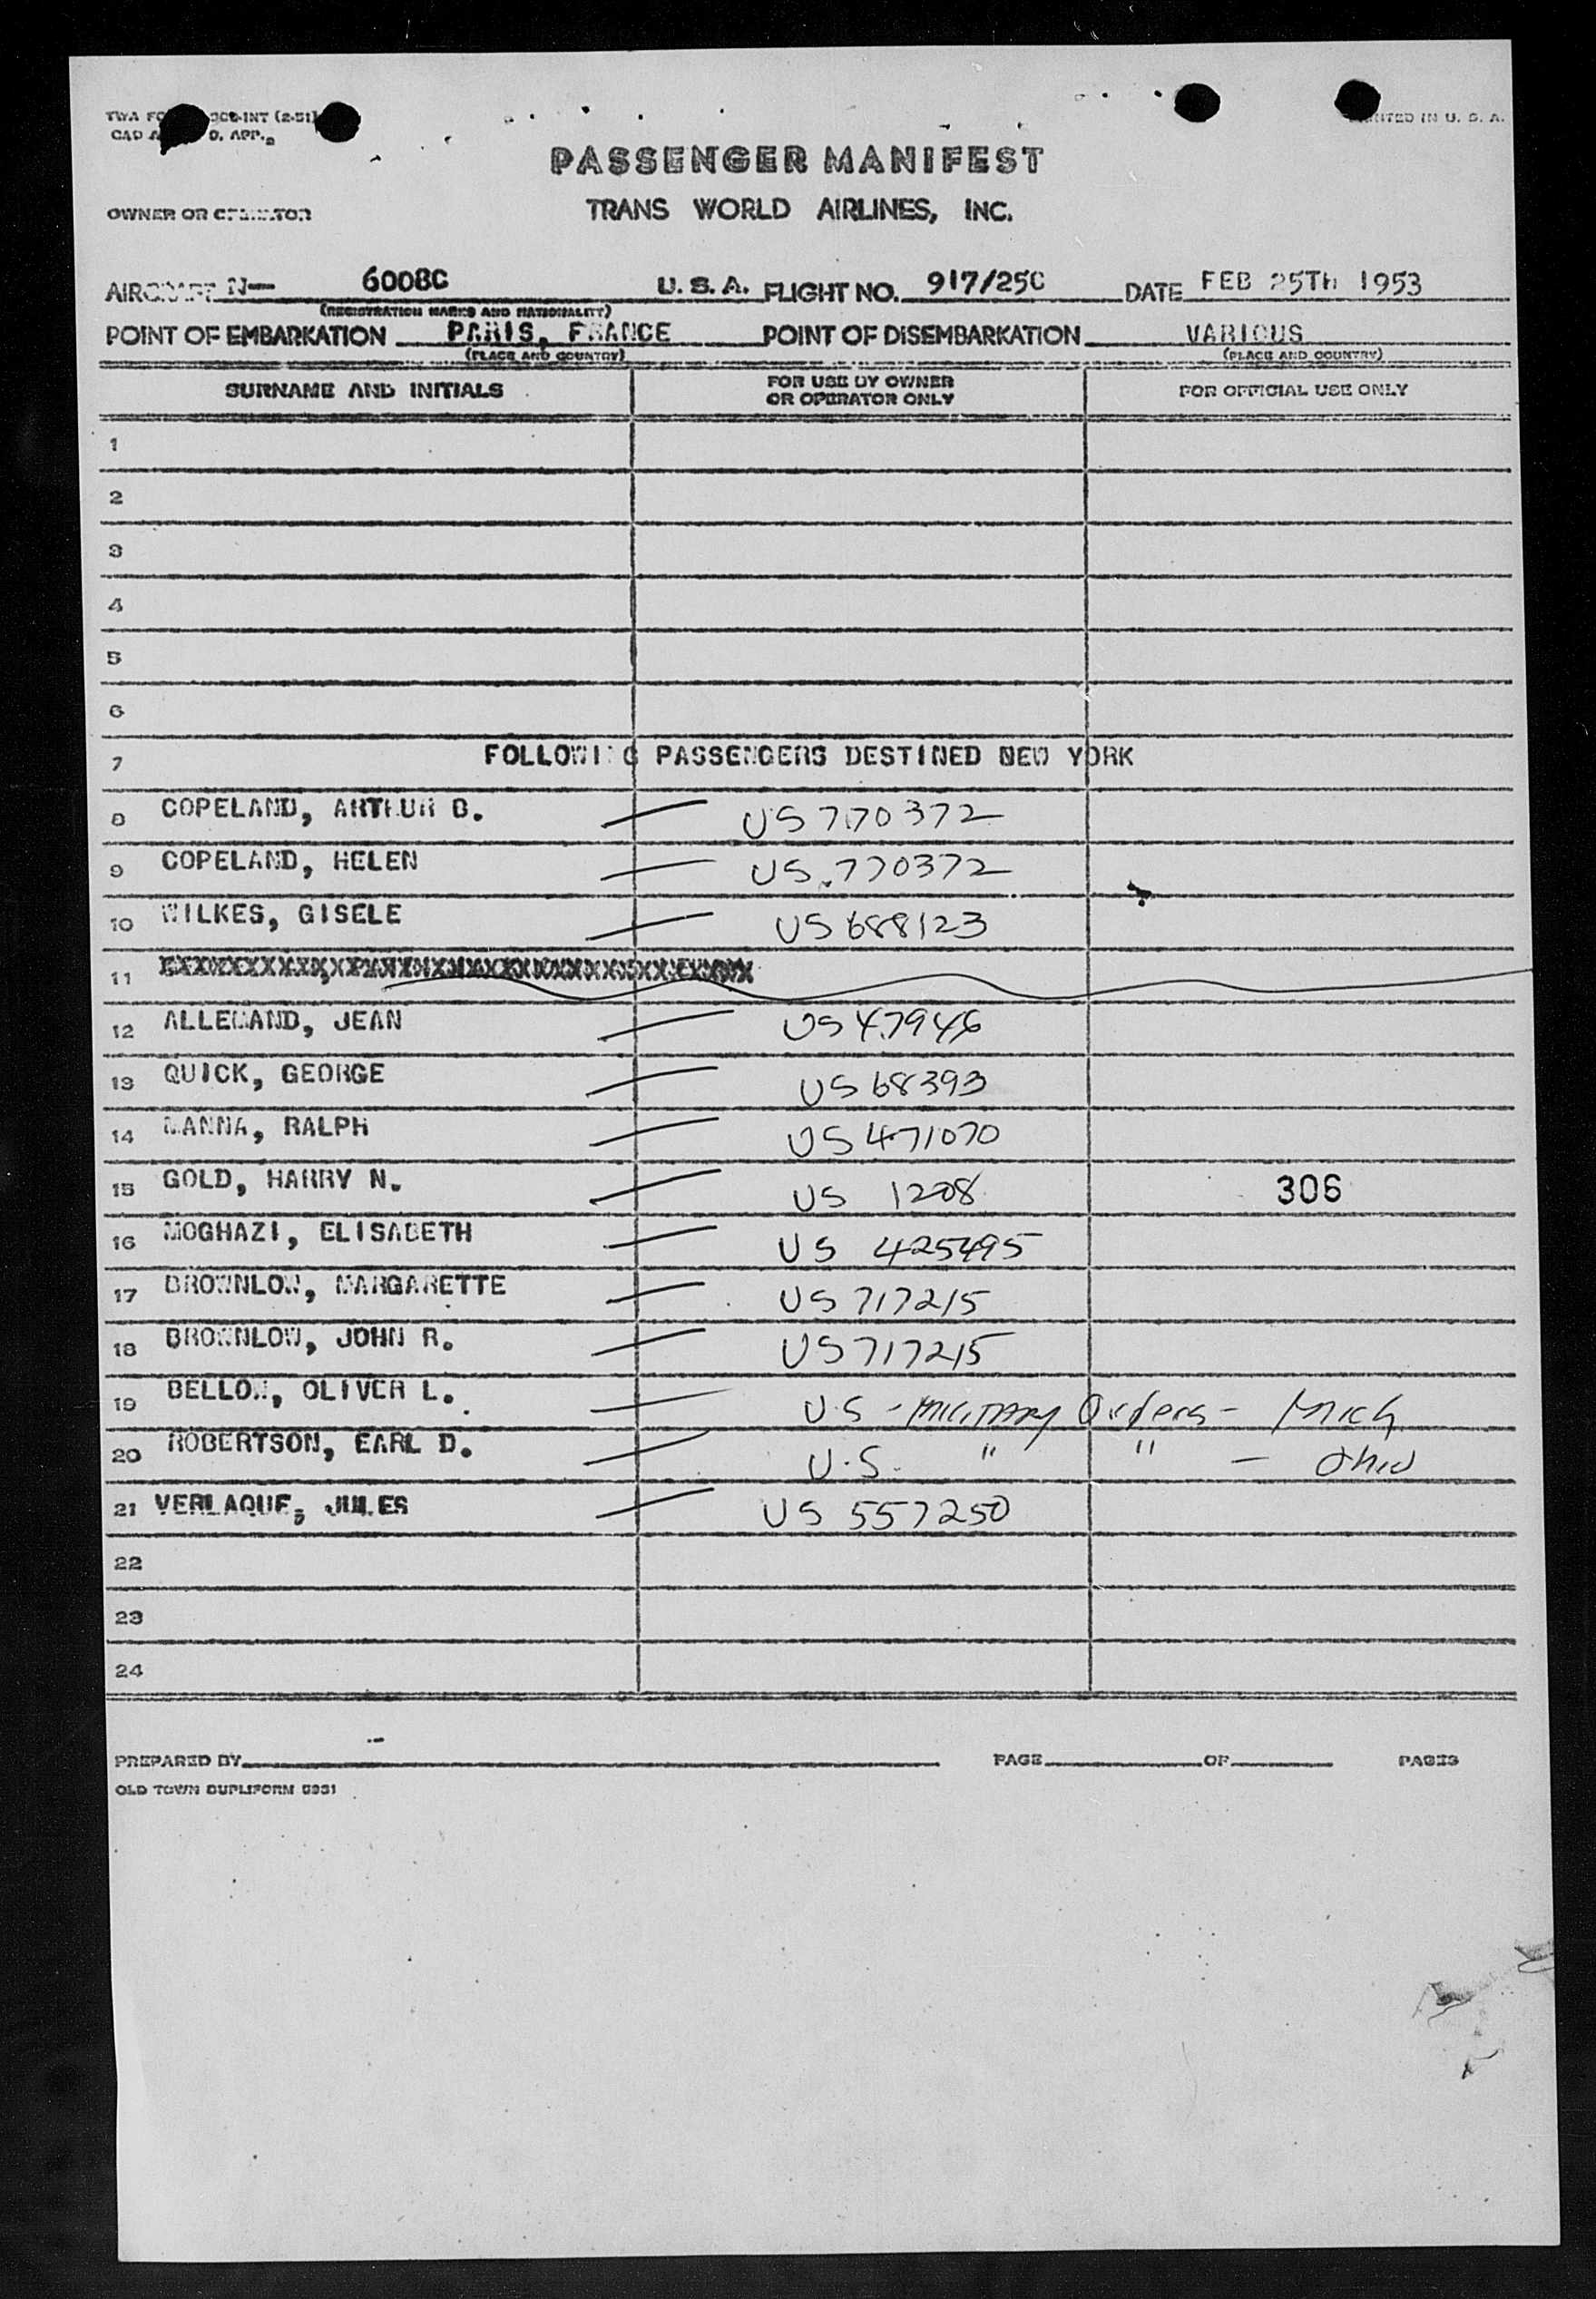 PRINTED IN U. S. A.
CAD A D. APP.
PASSENGER MANIFEST
OWNER OR OPERATOR
TRANS WORLD AIRLINES, INC.
AIRCRAFT N- 6008C U. S. A. FLIGHT NO. 917/25C DATE FEB 25TH 1953
(REGISTRATION MARKS AND NATIONALITY)
POINT OF EMBARKATION PARIS, FRANCE POINT OF DISEMBARKATION VARIOUS
(PLACE AND COUNTRY) (PLACE AND COUNTRY)
SURNAME AND INITIALS FOR USE BY OWNER OR OPERATOR ONLY FOR OFFICIAL USE ONLY
1
2
3
4
5
6
7 FOLLOWING PASSENGERS DESTINED NEW YORK
8 COPELAND, ARTHUR B. — US 770372
9 COPELAND, HELEN — US 770372
10 WILKES, GISELE — US 688123
11
12 ALLEMAND, JEAN — US 47946
13 QUICK, GEORGE — US 68393
14 MANNA, RALPH — US 471070
15 GOLD, HARRY N. — US 1208 306
16 MOGHAZI, ELISABETH — US 425495
17 BROWNLOW, MARGARETTE — US 717215
18 BROWNLOW, JOHN R. — US 717215
19 BELLOW, OLIVER L. — U.S - Military Orders - Mich
20 ROBERTSON, EARL D. — U.S. " " - Ohio
21 VERLAQUE, JULES — US 557250
22
23
24
PREPARED BY PAGE OF PAGES
OLD TOWN DUPLIFORM 5931